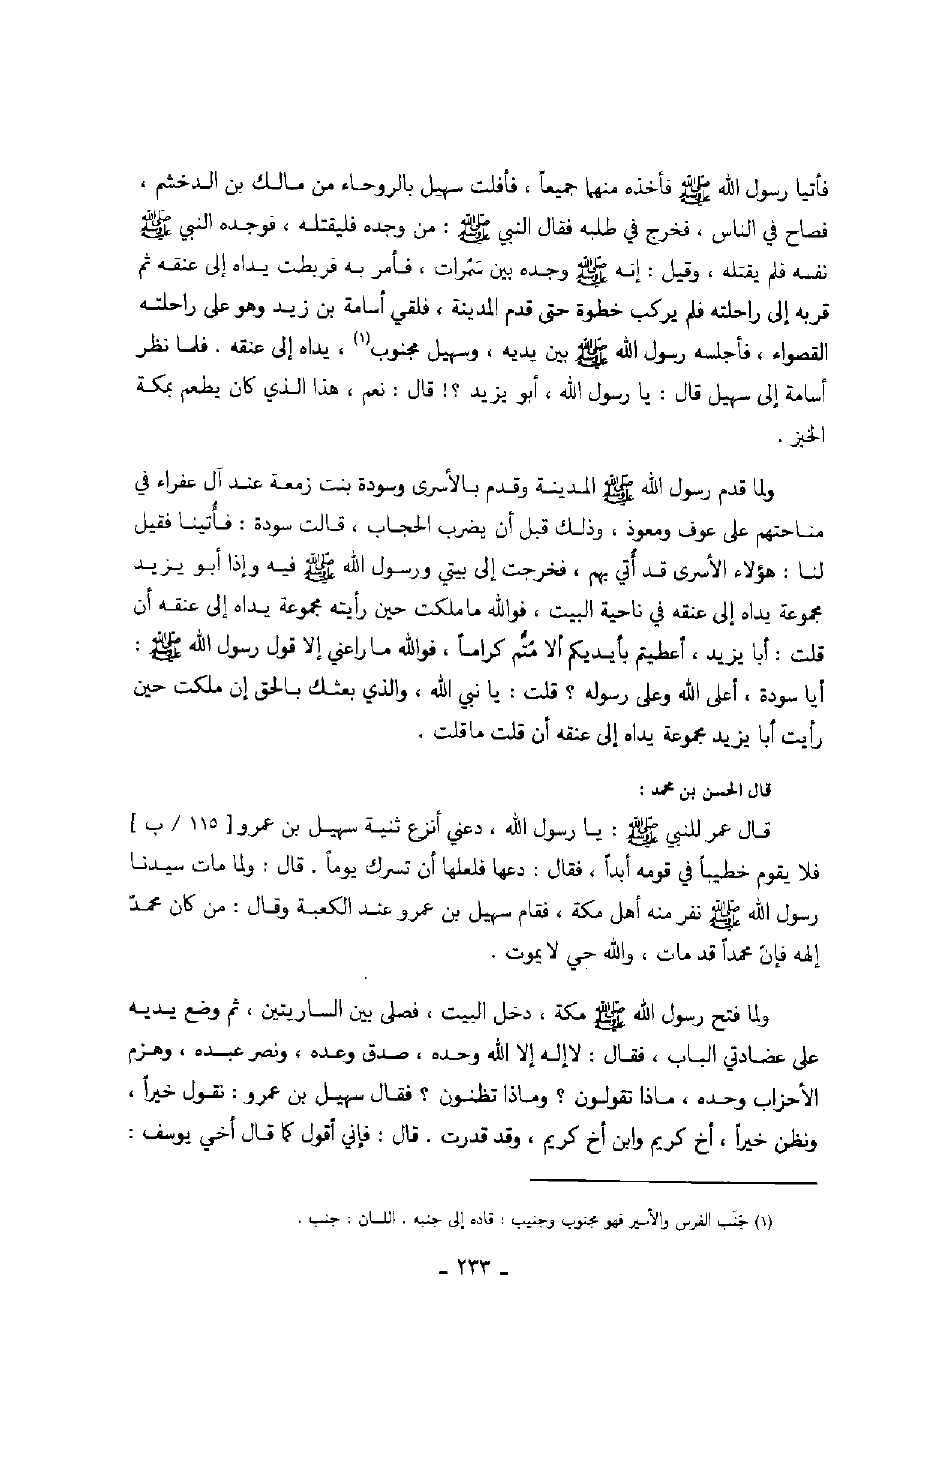 فأتيا رسول الله ﷺ فأخذه منها جميعاً ، فأفلت سهيل بالروحاء من مالك بن الدخشم ،
فصاح في الناس ، فخرج في طلبه فقال النبي ﷺ : من وجده فليقتله ، فوجده النبي ﷺ
نفسه فلم يقتله ، وقيل : إنه ﷺ وجده بين سَمُرات ، فأمر به فربطت يداه إلى عنقه ثم
قربه إلى راحلته فلم يركب خطوة حتى قدم المدينة ، فلقي أسامة بن زيد وهو على راحلته
القصواء ، فأجلسه رسول الله ﷺ بين يديه ، وسهيل مجنوب(١) ، يداه إلى عنقه . فلما نظر
أسامة إلى سهيل قال : يا رسول الله ، أبو يزيد ؟! قال : نعم ، هذا الذي كان يطعم بمكة
الخبز .
ولما قدم رسول الله ﷺ المدينة وقدم بالأسرى وسودة بنت زمعة عند آل عفراء في
مناحتهم على عوف ومعوذ ، وذلك قبل أن يضرب الحجاب ، قالت سودة : فأتينا فقيل
لنا : هؤلاء الأسرى قد أُتي بهم ، فخرجت إلى بيتي ورسول الله ﷺ فيه وإذا أبو يزيد
مجموعة يداه إلى عنقه في ناحية البيت ، فوالله ماملكت حين رأيته مجموعة يداه إلى عنقه أن
قلت : أبا يزيد ، أعطيتم بأيديكم ألا مُتُّم كراماً ، فوالله ماراعني إلا قول رسول الله ﷺ :
أيا سودة ، أعلى الله وعلى رسوله ؟ قلت : يا نبي الله ، والذي بعثك بالحق إن ملكت حين
رأيت أبا يزيد مجموعة يداه إلى عنقه أن قلت ماقلت .
قال الحسن بن محمد :
قال عمر للنبي ﷺ : يا رسول الله ، دعني أنزع ثنية سهيل بن عمرو [ ١١٥ / ب ]
فلا يقوم خطيباً في قومه أبداً ، فقال : دعها فلعلها أن تسرك يوماً . قال : ولما مات سيدنا
رسول الله ﷺ نفر منه أهل مكة ، فقام سهيل بن عمرو عند الكعبة وقال : من كان محمدٌ
إلهه فإنّ محمداً قد مات ، والله حي لا يموت .
ولما فتح رسول الله ﷺ مكة ، دخل البيت ، فصلى بين الساريتين ، ثم وضع يديه
على عضادتي الباب ، فقال : لاإله إلا الله وحده ، صدق وعده ، ونصر عبده ، وهزم
الأحزاب وحده ، ماذا تقولون ؟ وماذا تظنون ؟ فقال سهيل بن عمرو : نقول خيراً ،
ونظن خيراً ، أخ كريم وابن أخ كريم ، وقد قدرت . قال : فإني أقول كما قال أخي يوسف :
(١) جُنِّب الفرس والأسير فهو مجنوب وجنيب : قاده إلى جنبه . اللسان : جنب .
- ٢٣٣ -